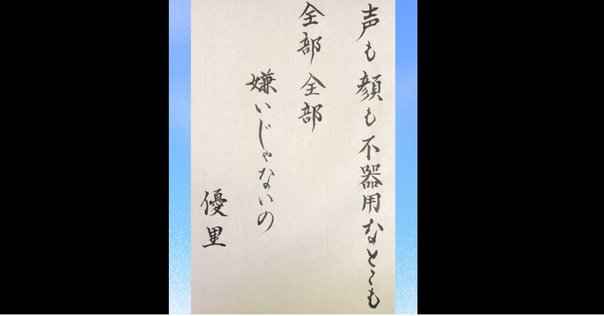 声も顔も不器用なとこも
全部全部
嫌いじゃないの
優里